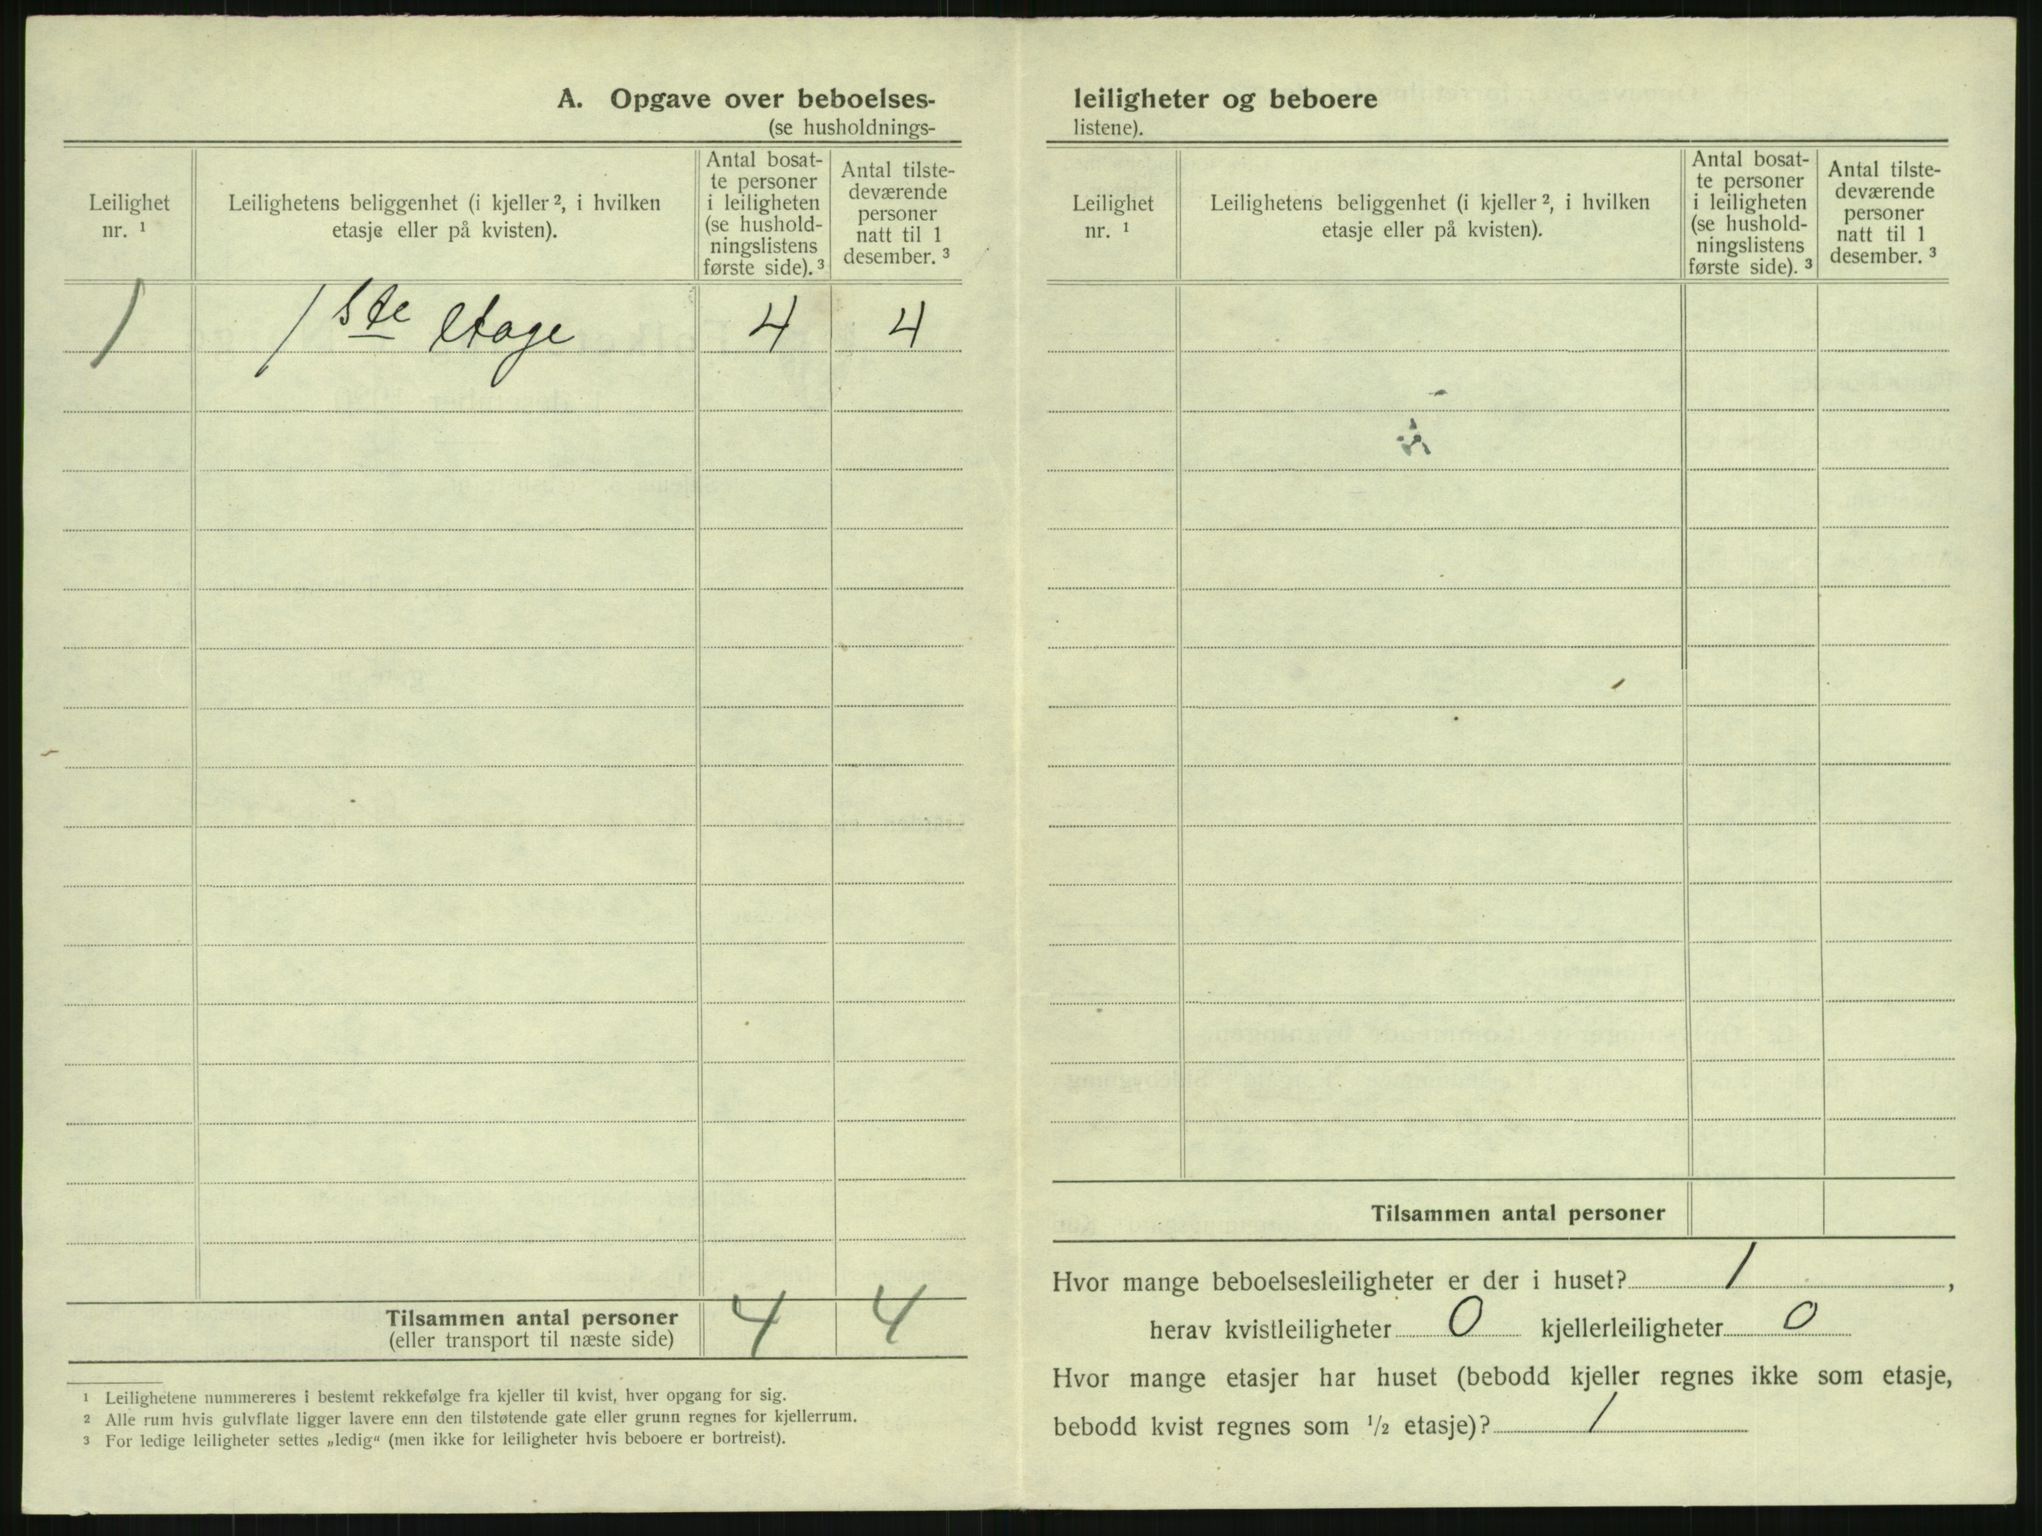 A. Opgave over beboelses-
(se husholdnings-
Leilighet
nr. ¹
Leilighetens beliggenhet (i kjeller ², i hvilken
etasje eller på kvisten).
Antal bosat-
te personer
i leiligheten
(se hushold-
ningslistens
første side). ³
Antal tilste-
deværende
personer
natt til 1
desember. ³
1 1ste etage 4 4
Tilsammen antal personer 4 4
(eller transport til næste side)
¹ Leilighetene nummereres i bestemt rekkefølge fra kjeller til kvist, hver opgang for sig.
² Alle rum hvis gulvflate ligger lavere enn den tilstøtende gate eller grunn regnes for kjellerrum.
³ For ledige leiligheter settes „ledig“ (men ikke for leiligheter hvis beboere er bortreist).
leiligheter og beboere
listene).
Leilighet
nr. ¹
Leilighetens beliggenhet (i kjeller ², i hvilken
etasje eller på kvisten).
Antal bosat-
te personer
i leiligheten
(se hushold-
ningslistens
første side). ³
Antal tilste-
deværende
personer
natt til 1
desember. ³
Tilsammen antal personer
Hvor mange beboelsesleiligheter er der i huset? 1,
herav kvistleiligheter 0 kjellerleiligheter 0
Hvor mange etasjer har huset (bebodd kjeller regnes ikke som etasje,
bebodd kvist regnes som ½ etasje)? 1